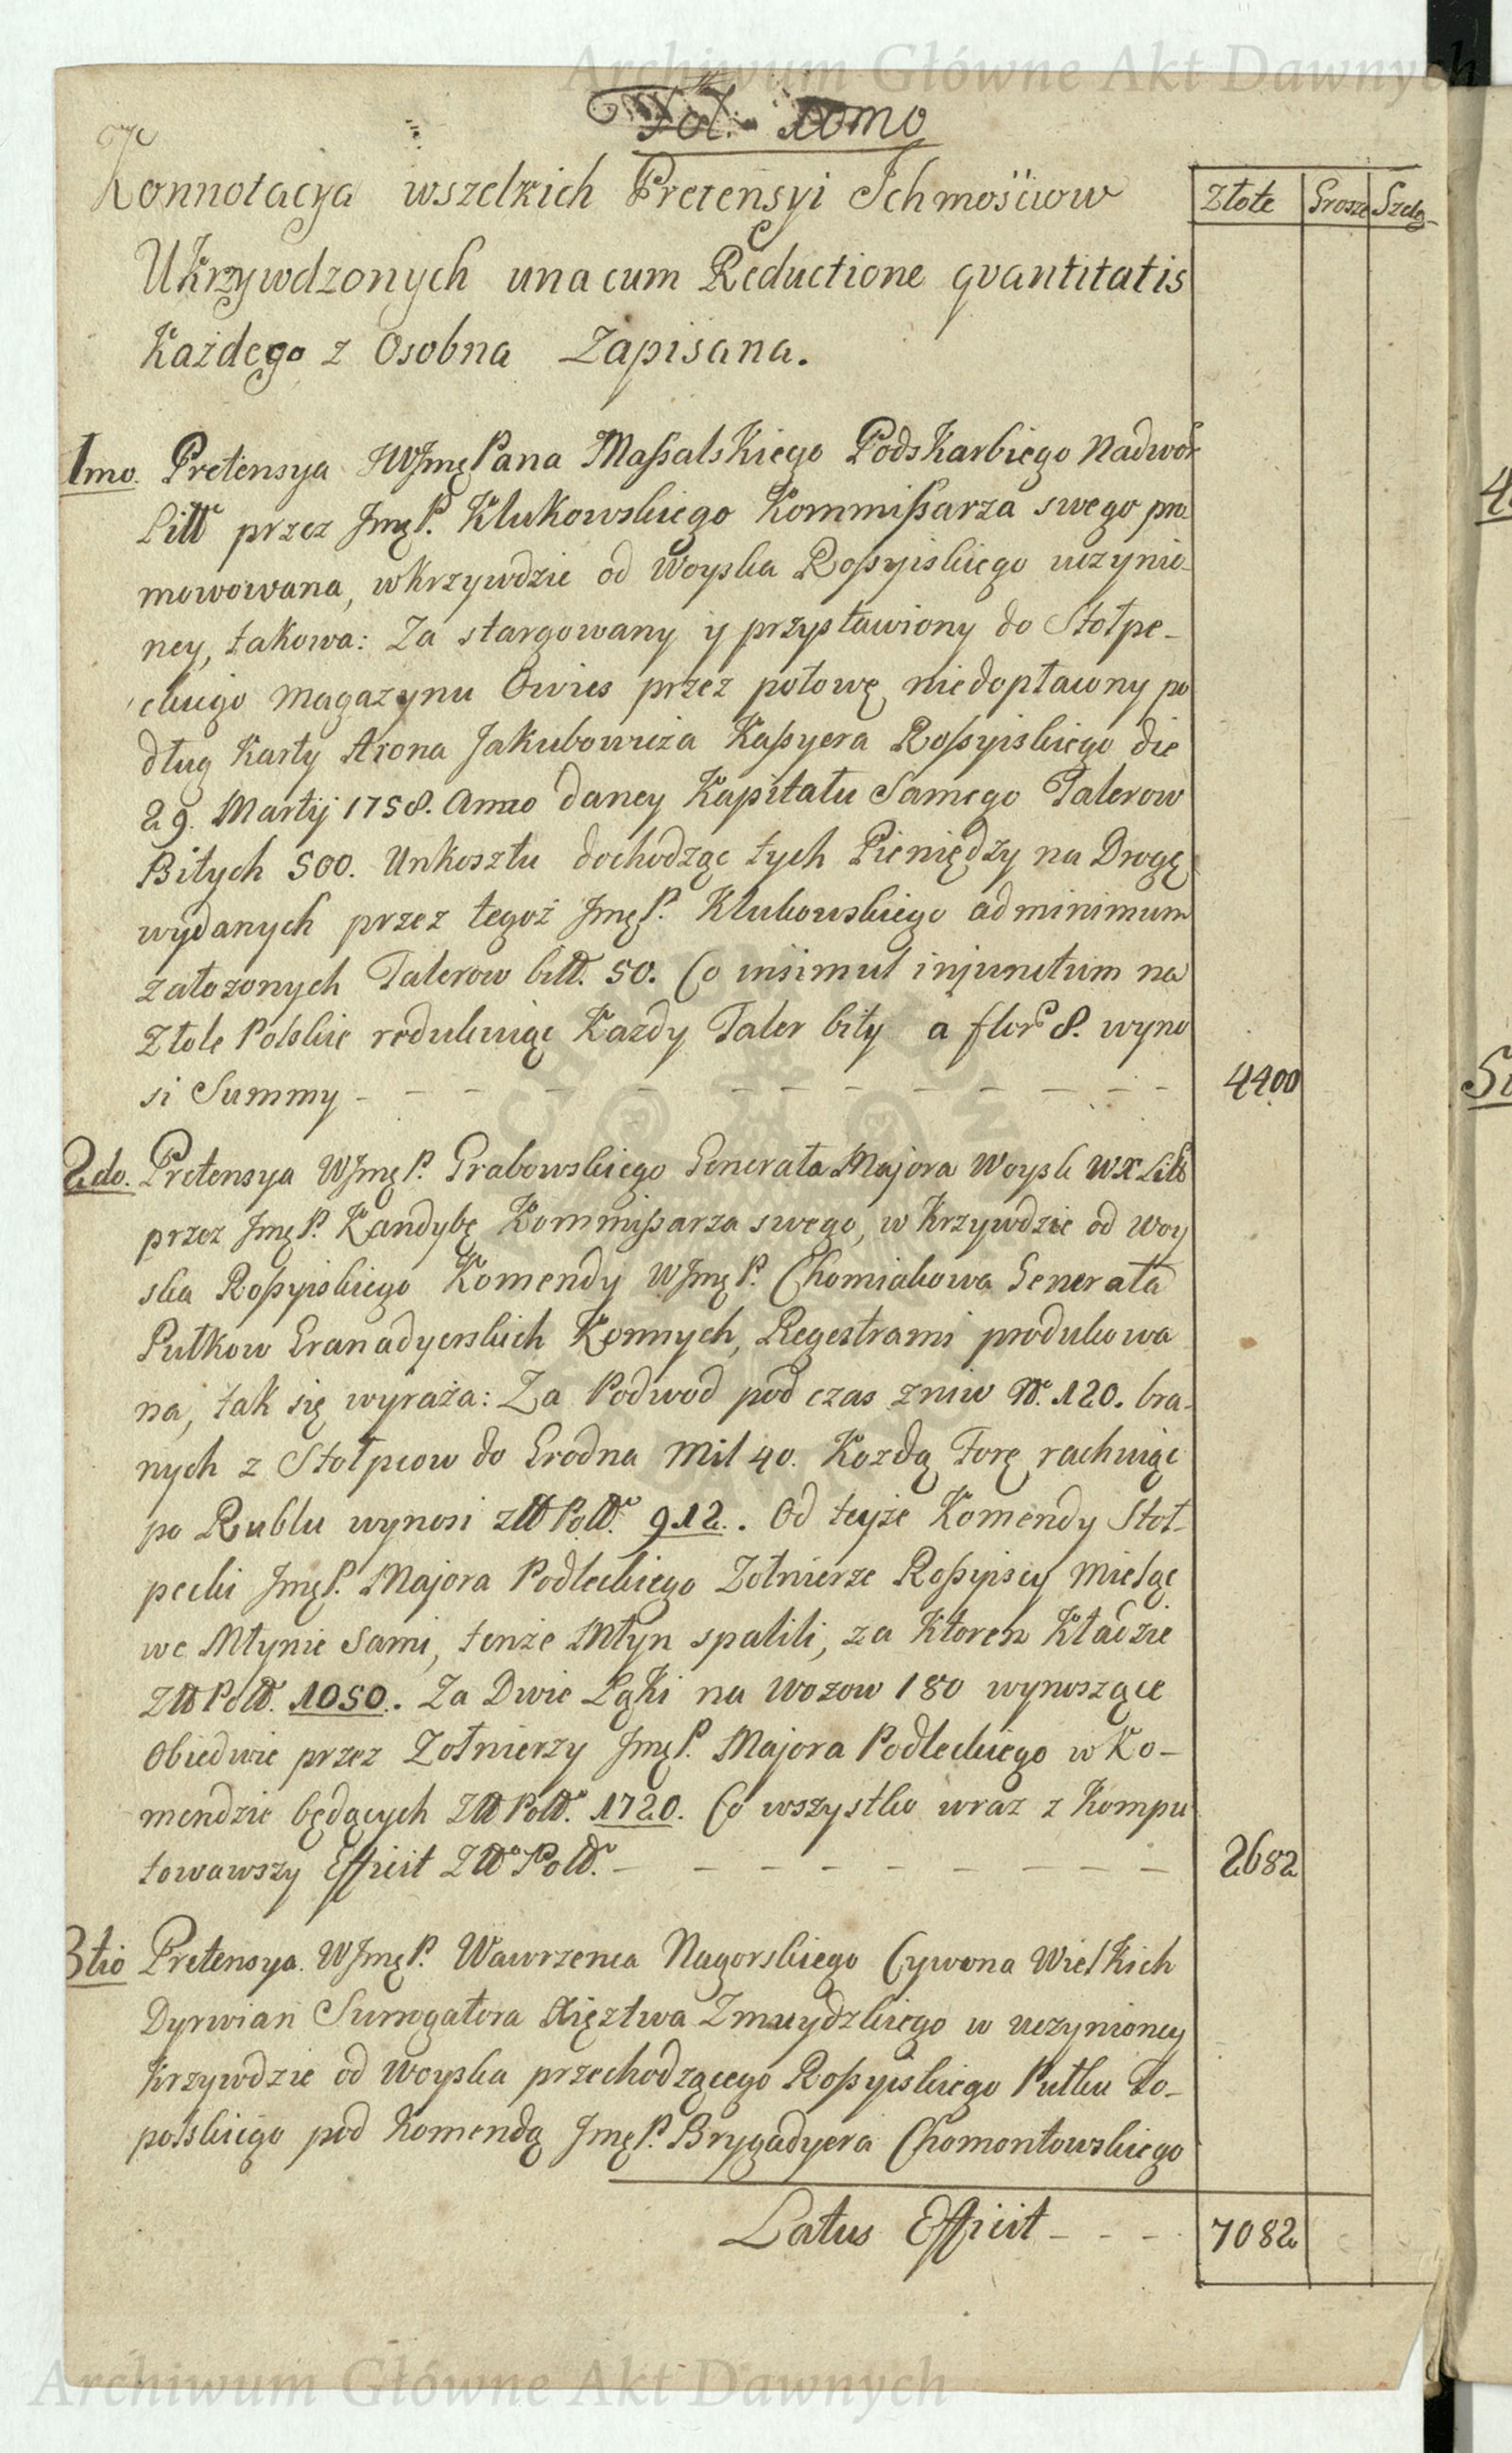 Archiwum Główne Akt Dawnych
Fol. 10mo
Konnotacya wszelkich Pretensyi Ichmościow
Ukrzywdzonych una cum Reductione qvantitatis
Każdego z Osobna Zapisana.
Złote Grosze Szelą-
1mo. Pretensya JWJmę Pana Massalskiego Podskarbiego Nadwor
Littt przez JmęP. Klukowskiego Kommissarza swego pro-
mowowana, w krzywdzie od Woyska Rossyiskiego uczynio-
ney, takowa: Za stargowany y przystawiony do Stołpe-
ckiego magazynu Owies przez połowę niedopłacony po
dług Karty Arona Jakubowicza Kassyera Rossyiskiego die
29. Martij 1758. Anno daney Kapitału Samego Talerow
Bitych 500. Unkosztu dochodząc tych Pieniędzy na Drogę
wydanych przez tegoż JmęP. Klukowskiego ad minimum
załozonych Talerow bitt. 50. Co insimul injunctum na
Złote Polskie redukuiąc Kazdy Taler bity a flor 8. wyno
si Summy - - - - - - - - - - - - 4400
2do. Pretensya WJmęP. Grabowskiego Generała Majora Woysk WX Litt
przez JmęP. Kandybę Kommissarza swego, w Krzywdzie od Woy
ska Rossyiskiego Komendy WJmęP. Chomiakowa Generała
Pułkow Granadyerskich Konnych, Regestrami produkowa
na, tak się wyraża: Za Podwod pod czas zniw N. 120. bra-
nych z Stołpcow do Grodna Mil 40. Kozdą Forę rachuiąc
po Rublu wynosi złł Poll. 912. Od teyże Komendy Stoł-
pecki JmęP. Majora Podleckiego Zołnierze Rossyiscy mieląc
we Młynie Sami, tenże Młyn spalili, za Ktoren Kładzie
Złł Poll. 1050. Za Dwie Łąki na Wozow 180 wynoszące
Obiedwie przez Zołnierzy JmęP. Majora Podleckiego w Ko-
mendzie będących Złł Poll. 1720. Co wszystko wraz z Kompu
towawszy Efficit Złł Poll. - - - - - - - - - 2682
3tio Pretensya. WJmęP. Wawrzenca Nagorskiego Cywona Wielkich
Dyrwian Surrogatora Xięztwa Zmuydzkiego w uczynioney
Krzywdzie od Woyska przechodzącego Rossyiskiego Pułku To-
polskiego pod Komendą JmęP. Brygadyera Chomontowskiego
Latus Efficit - - - 7082
Archiwum Główne Akt Dawnych